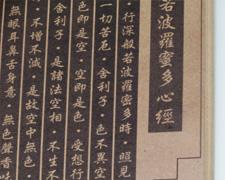 若波羅蜜多心經
行深般若波羅蜜多時·照見
一切苦厄·舍利子·色不異空
色即是空·受想行
舍利子·是諸法空相·不生不
不增不減·是故空中無色·
無眼耳鼻舌身意·無色聲香味